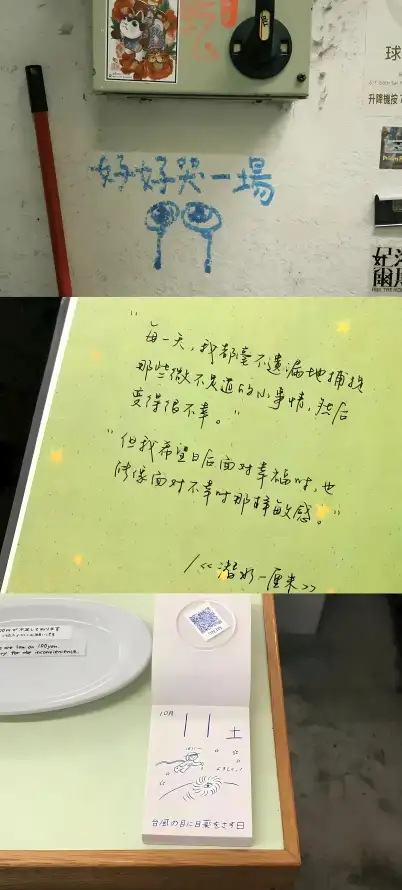 好好哭一場
球
升降機按7
"每一天，我都毫不遗漏地捕捉
那些微不足道的小事情，然后
变得很不幸。"
"但我希望日后面对幸福时，也
能像面对不幸时那样敏感。"
/《潜水一厘米》
e are low on 100yen.
ry for the inconvenience.
10月
11 土
台風の目に目薬をさす日